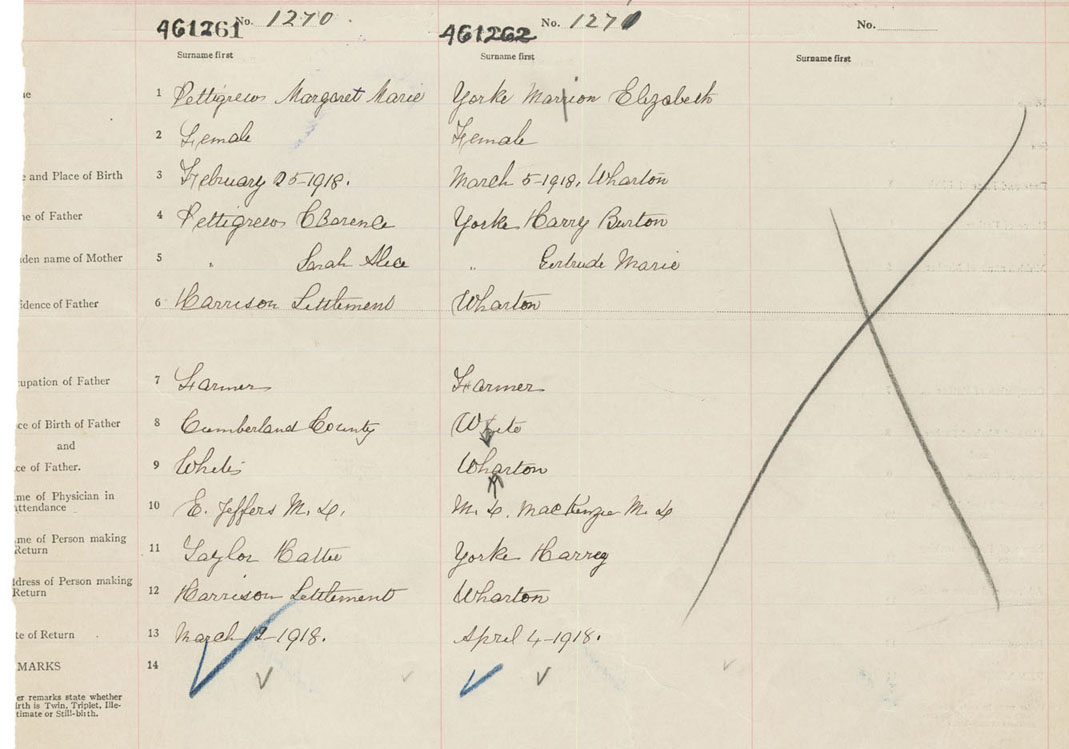 461261 No. 1270. 461262 No. 1271 No.
Surname first Surname first Surname first
1 Pettigrew Margaret Marie Yorke Marrion Elizabeth
2 Female Female
e and Place of Birth 3 February 25-1918. March 5-1918. Wharton
ne of Father 4 Pettigrew Clarence Yorke Harry Burton
iden name of Mother 5 " Sarah Alice " Gertrude Marie
idence of Father 6 Harrison Settlement Wharton
upation of Father 7 Farmer Farmer
ce of Birth of Father 8 Cumberland County White
and
ce of Father. 9 White Wharton
me of Physician in
ttendance 10 E. Jeffers M.D. M. D. MacKenzie M.D
me of Person making
Return 11 Taylor Hattie Yorke Harrey
ddress of Person making
Return 12 Harrison Settlement Wharton
te of Return 13 March 12-1918. April 4-1918.
MARKS 14
er remarks state whether
irth is Twin, Triplet, Ille-
timate or Still-birth.